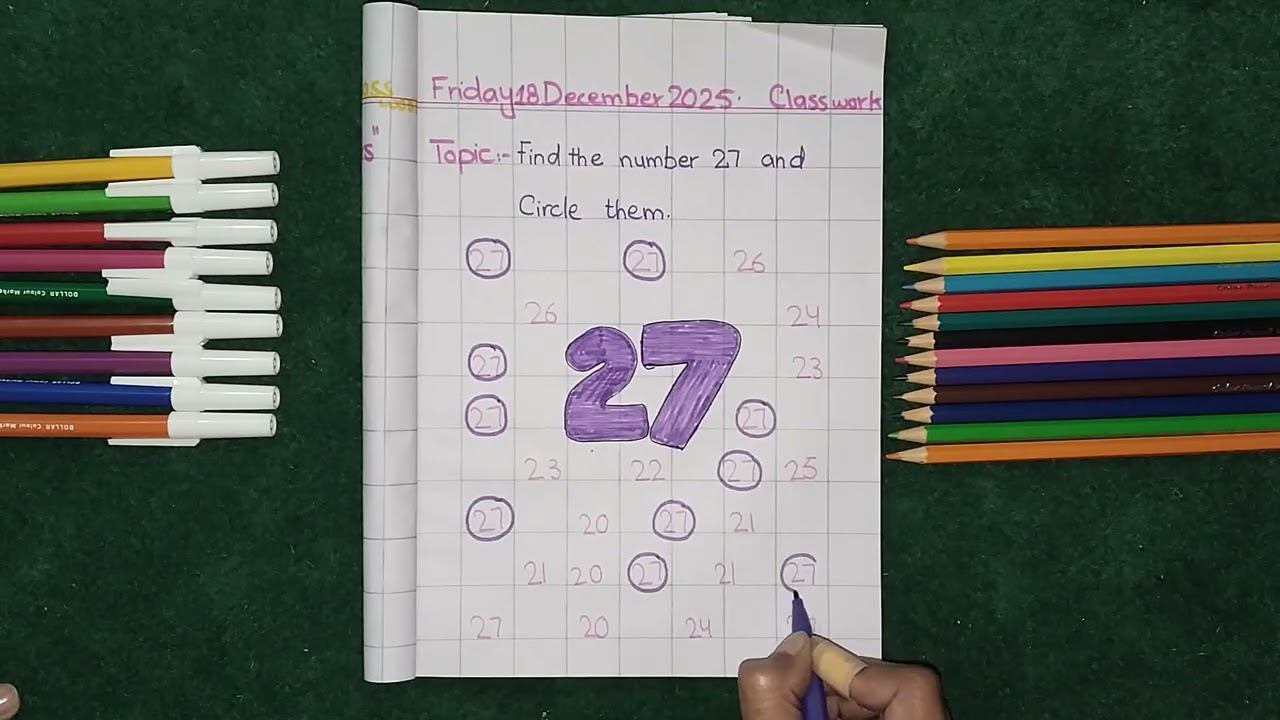 Friday 18 December 2025. Classwork
Topic:- Find the number 27 and
Circle them.
27 27 26
26 24
27
27 23
27 27
23 22 27 25
27 20 27 21
21 20 27 21 27
27 20 24
s"
DOLLAR Colour Marker
DOLLAR Colour Marker